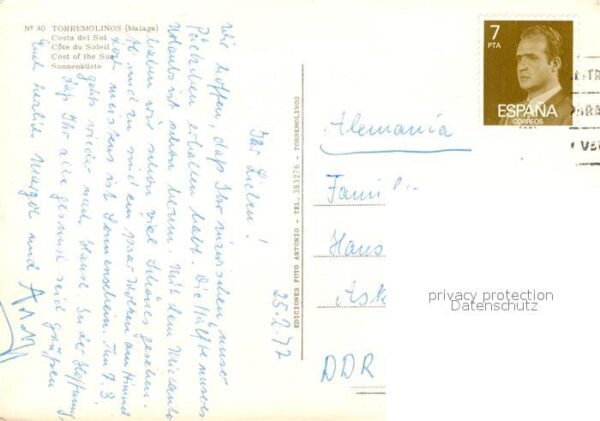 Nº 40 TORREMOLINOS (Malaga)
Costa del Sol
Côte du Soleil
Cost of the Sun
Sonnenküste
Ihr Lieben!
25.2.77
Wir hoffen, daß Ihr inzwischen unser
Päckchen erhalten habt. Die Hälfte unseres
Urlaubs ist schon herum. Mit dem Mietauto
haben wir schon viel Schönes gesehen.
Es sind zu mit ein paar Wolken am Himmel
doch meistens ist Sonnenschein. Am 9.3.
geht wieder nach Hause. In der Hoffnung
daß Ihr alle gesund seid grüßen
Euch herzlich Margot und
EDICIONES FOTO ANTONIO - TEL. 383276 - TORREMOLINOS
7
PTA
ESPAÑA
CORREOS
PARA
Alemania
Fami
Hans
Ask
DDR
privacy protection
Datenschutz